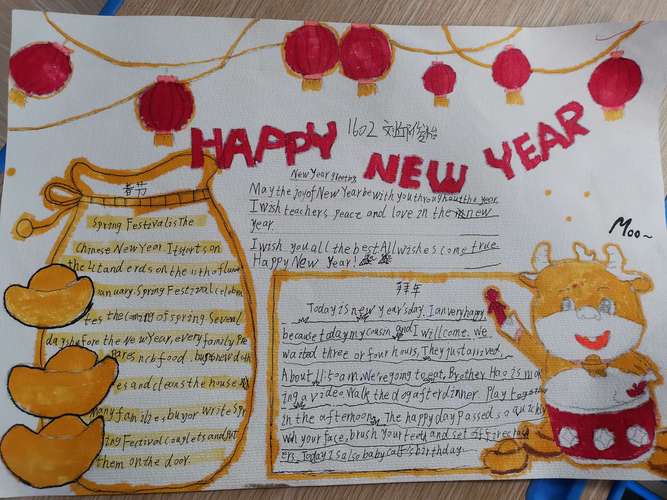 1602
HAPPY
NEW
YEAR
New Year greeting
May the joy of New Year be with you throughout the year
I wish teachers peace and love in the new
year.
I wish you all the best All wishes come true
Happy New Year!
春节
Spring Festival is The
Chinese New Year. It starts on
the 1st and ends on the 15th of
January. Spring Festival celebra
tes the coming of spring. Several
days before the New Year, every family Pre
pares food, new
es and cleans the house.
Many families, buy or write Spr
ing Festival couplets and put
them on the door.
拜年
Today is new year's day. I an very happy
because today my cousin and I will come. We
waited three or four hours, They just arrived.
About 11:50 am. We're going to eat, Brother Hao is mak
ing a video. Walk the dog after dinner. Play together
in the afternoon. The happy day passed so quickly
Wash your face, brush your teeth and set off firecrack
ers. Today is also baby calf's birthday.
Moo~